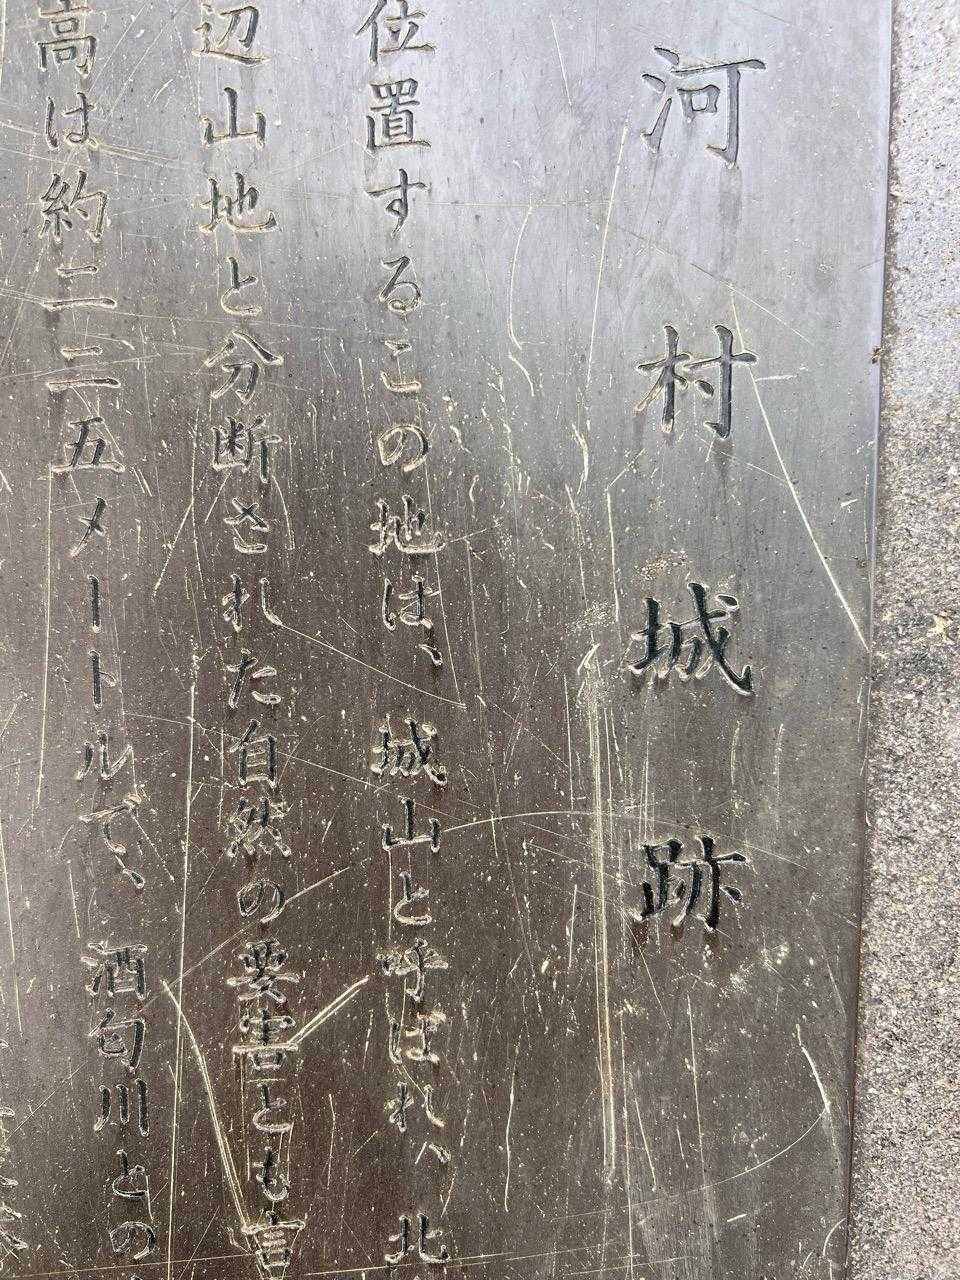 河村城跡
位置するこの地は、城山と呼ばれ、北
辺山地と分断された自然の要害とも言
高は約二二五メートルで、酒匂川との